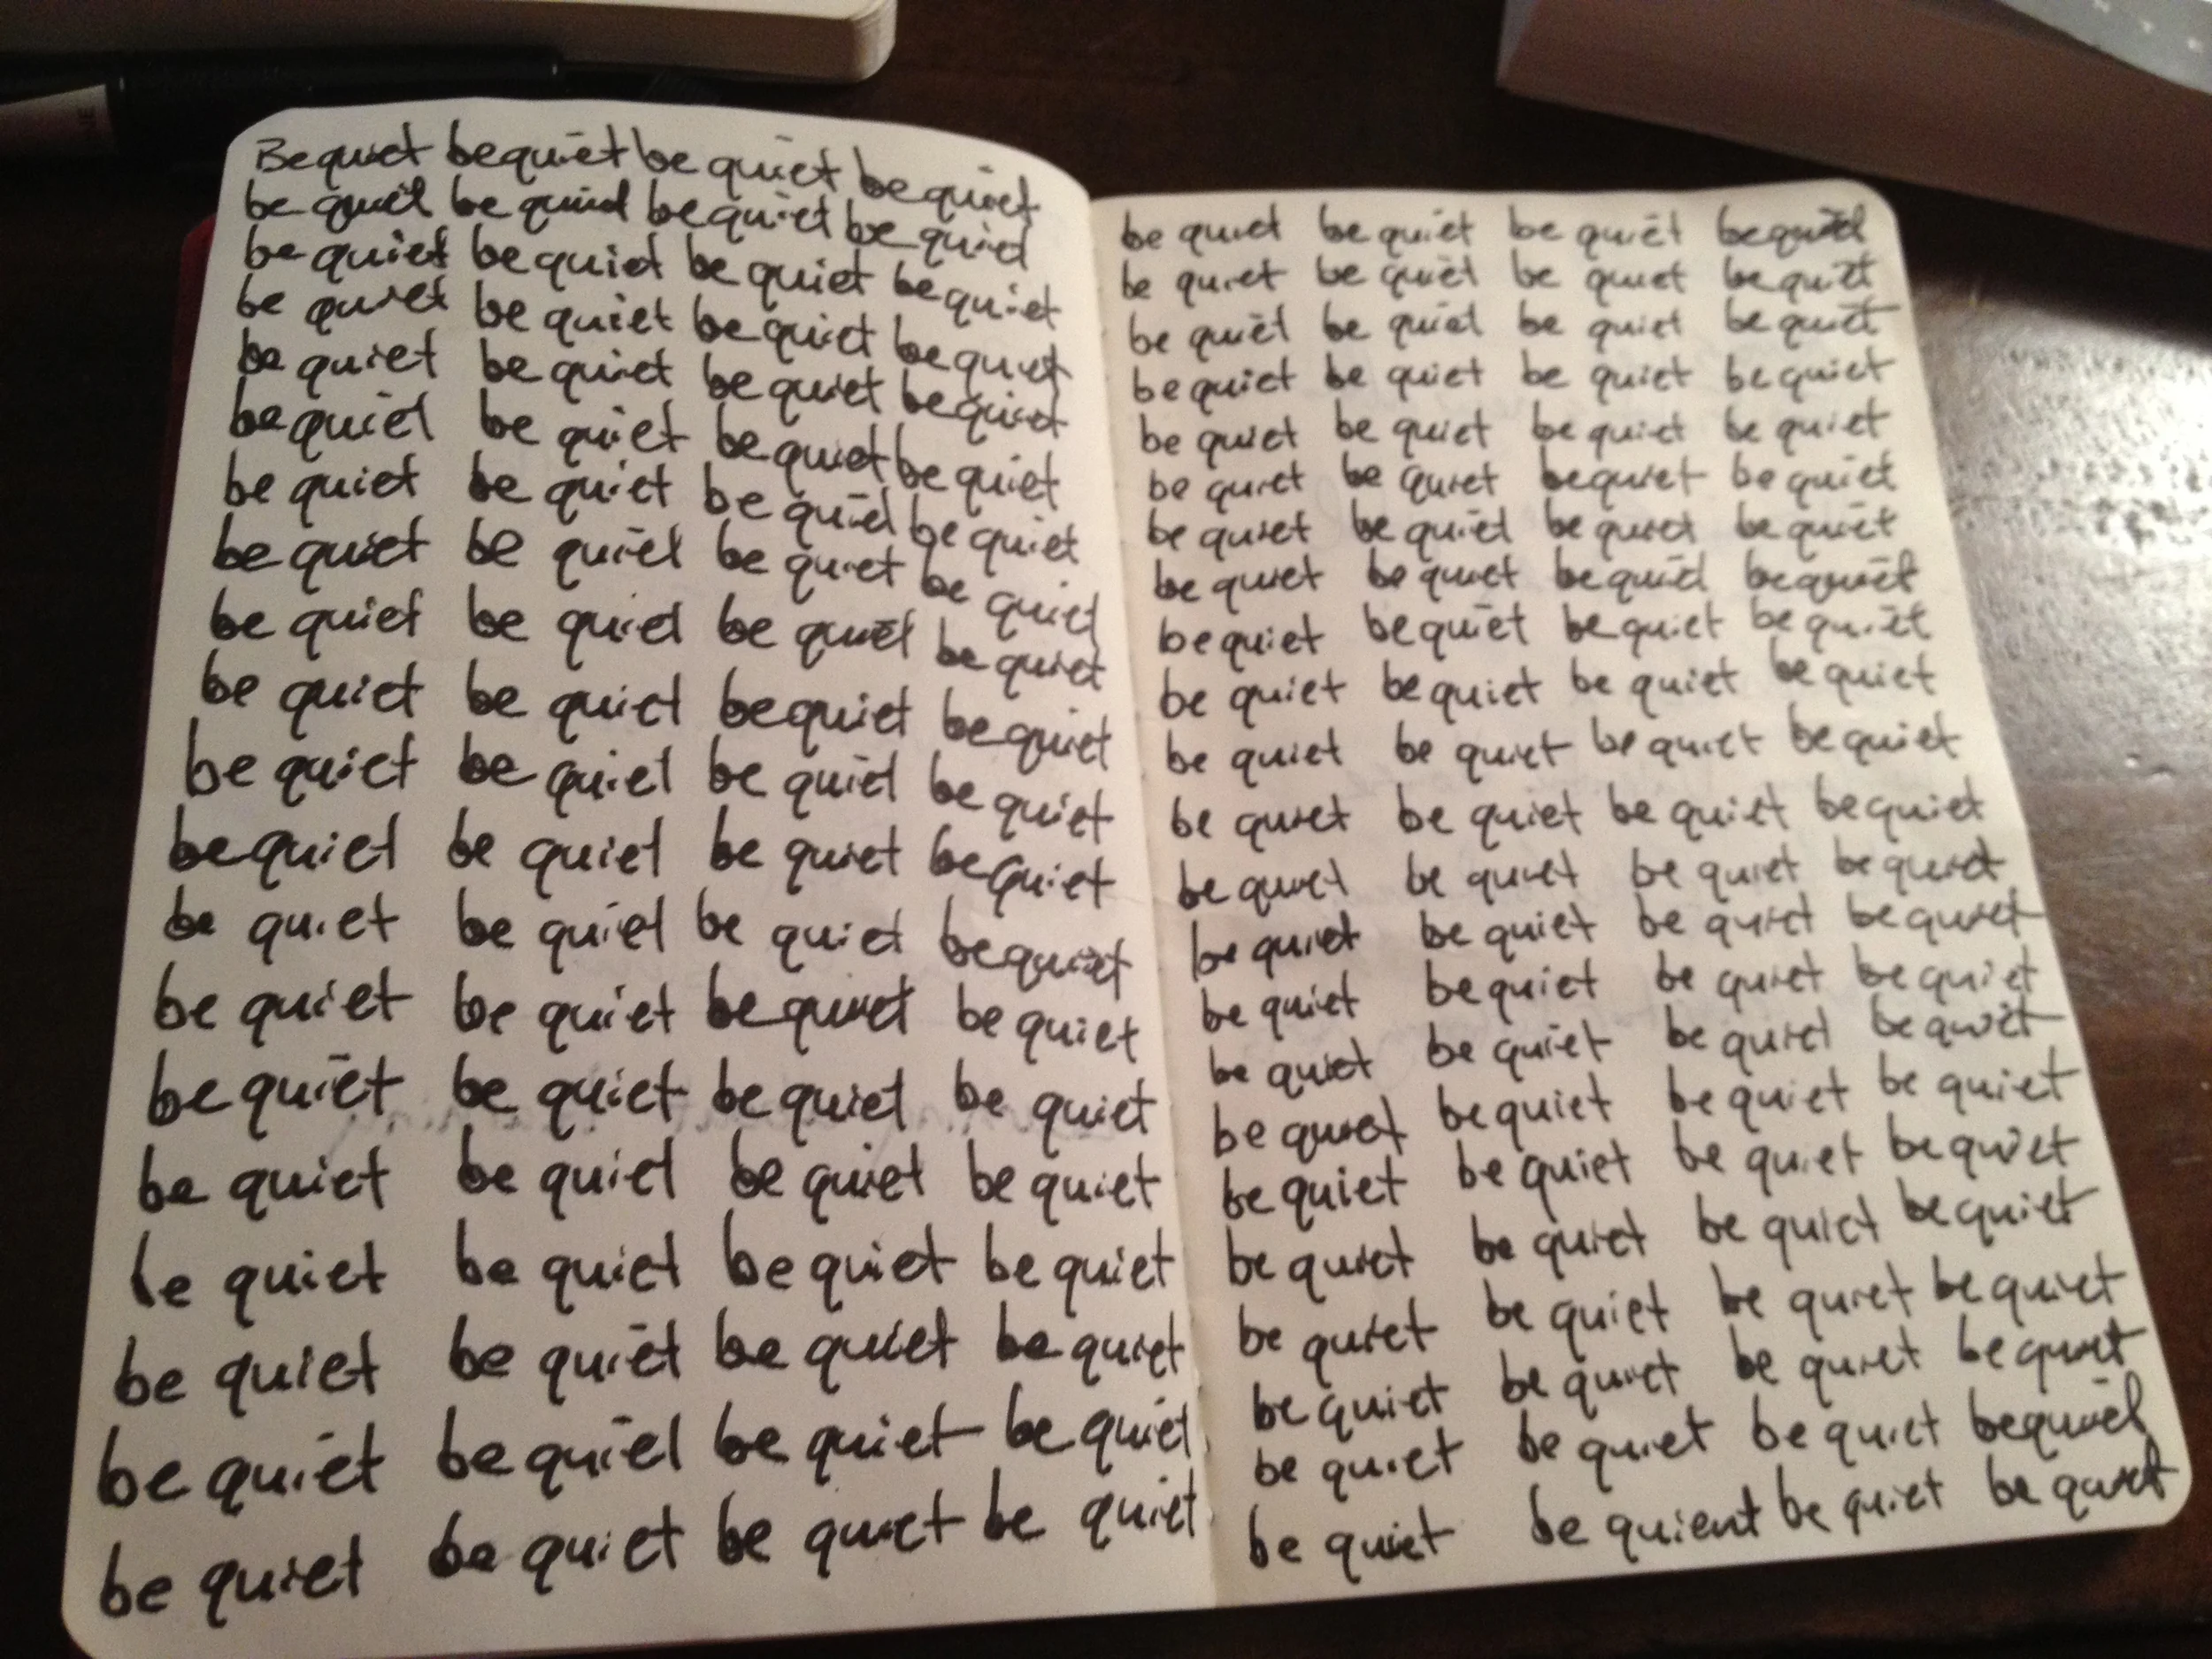 Be quiet be quiet be quiet be quiet
be quiet be quiet be quiet be quiet
be quiet be quiet be quiet be quiet
be quiet be quiet be quiet be quiet
be quiet be quiet be quiet be quiet
be quiet be quiet be quiet be quiet
be quiet be quiet be quiet be quiet
be quiet be quiet be quiet be quiet
be quiet be quiet be quiet be quiet
be quiet be quiet be quiet be quiet
be quiet be quiet be quiet be quiet
be quiet be quiet be quiet be quiet
be quiet be quiet be quiet be quiet
be quiet be quiet be quiet be quiet
be quiet be quiet be quiet be quiet
be quiet be quiet be quiet be quiet
be quiet be quiet be quiet be quiet
be quiet be quiet be quiet be quiet
be quiet be quiet be quiet be quiet
be quiet be quiet be quiet be quiet
be quiet be quiet be quiet be quiet
be quiet be quiet be quiet be quiet
be quiet be quiet be quiet be quiet
be quiet be quiet be quiet be quiet
be quiet be quiet be quiet be quiet
be quiet be quiet be quiet be quiet
be quiet be quiet be quiet be quiet
be quiet be quiet be quiet be quiet
be quiet be quiet be quiet be quiet
be quiet be quiet be quiet be quiet
be quiet be quiet be quiet be quiet
be quiet be quiet be quiet be quiet
be quiet be quiet be quiet be quiet
be quiet be quiet be quiet be quiet
be quiet be quiet be quiet be quiet
be quiet be quiet be quiet be quiet
be quiet be quiet be quiet be quiet
be quiet be quiet be quiet be quiet
be quiet be quiet be quiet be quiet
be quiet be quiet be quiet be quiet
be quiet be quiet be quiet be quiet
be quiet be quiet be quiet be quiet
be quiet be quient be quiet be quiet